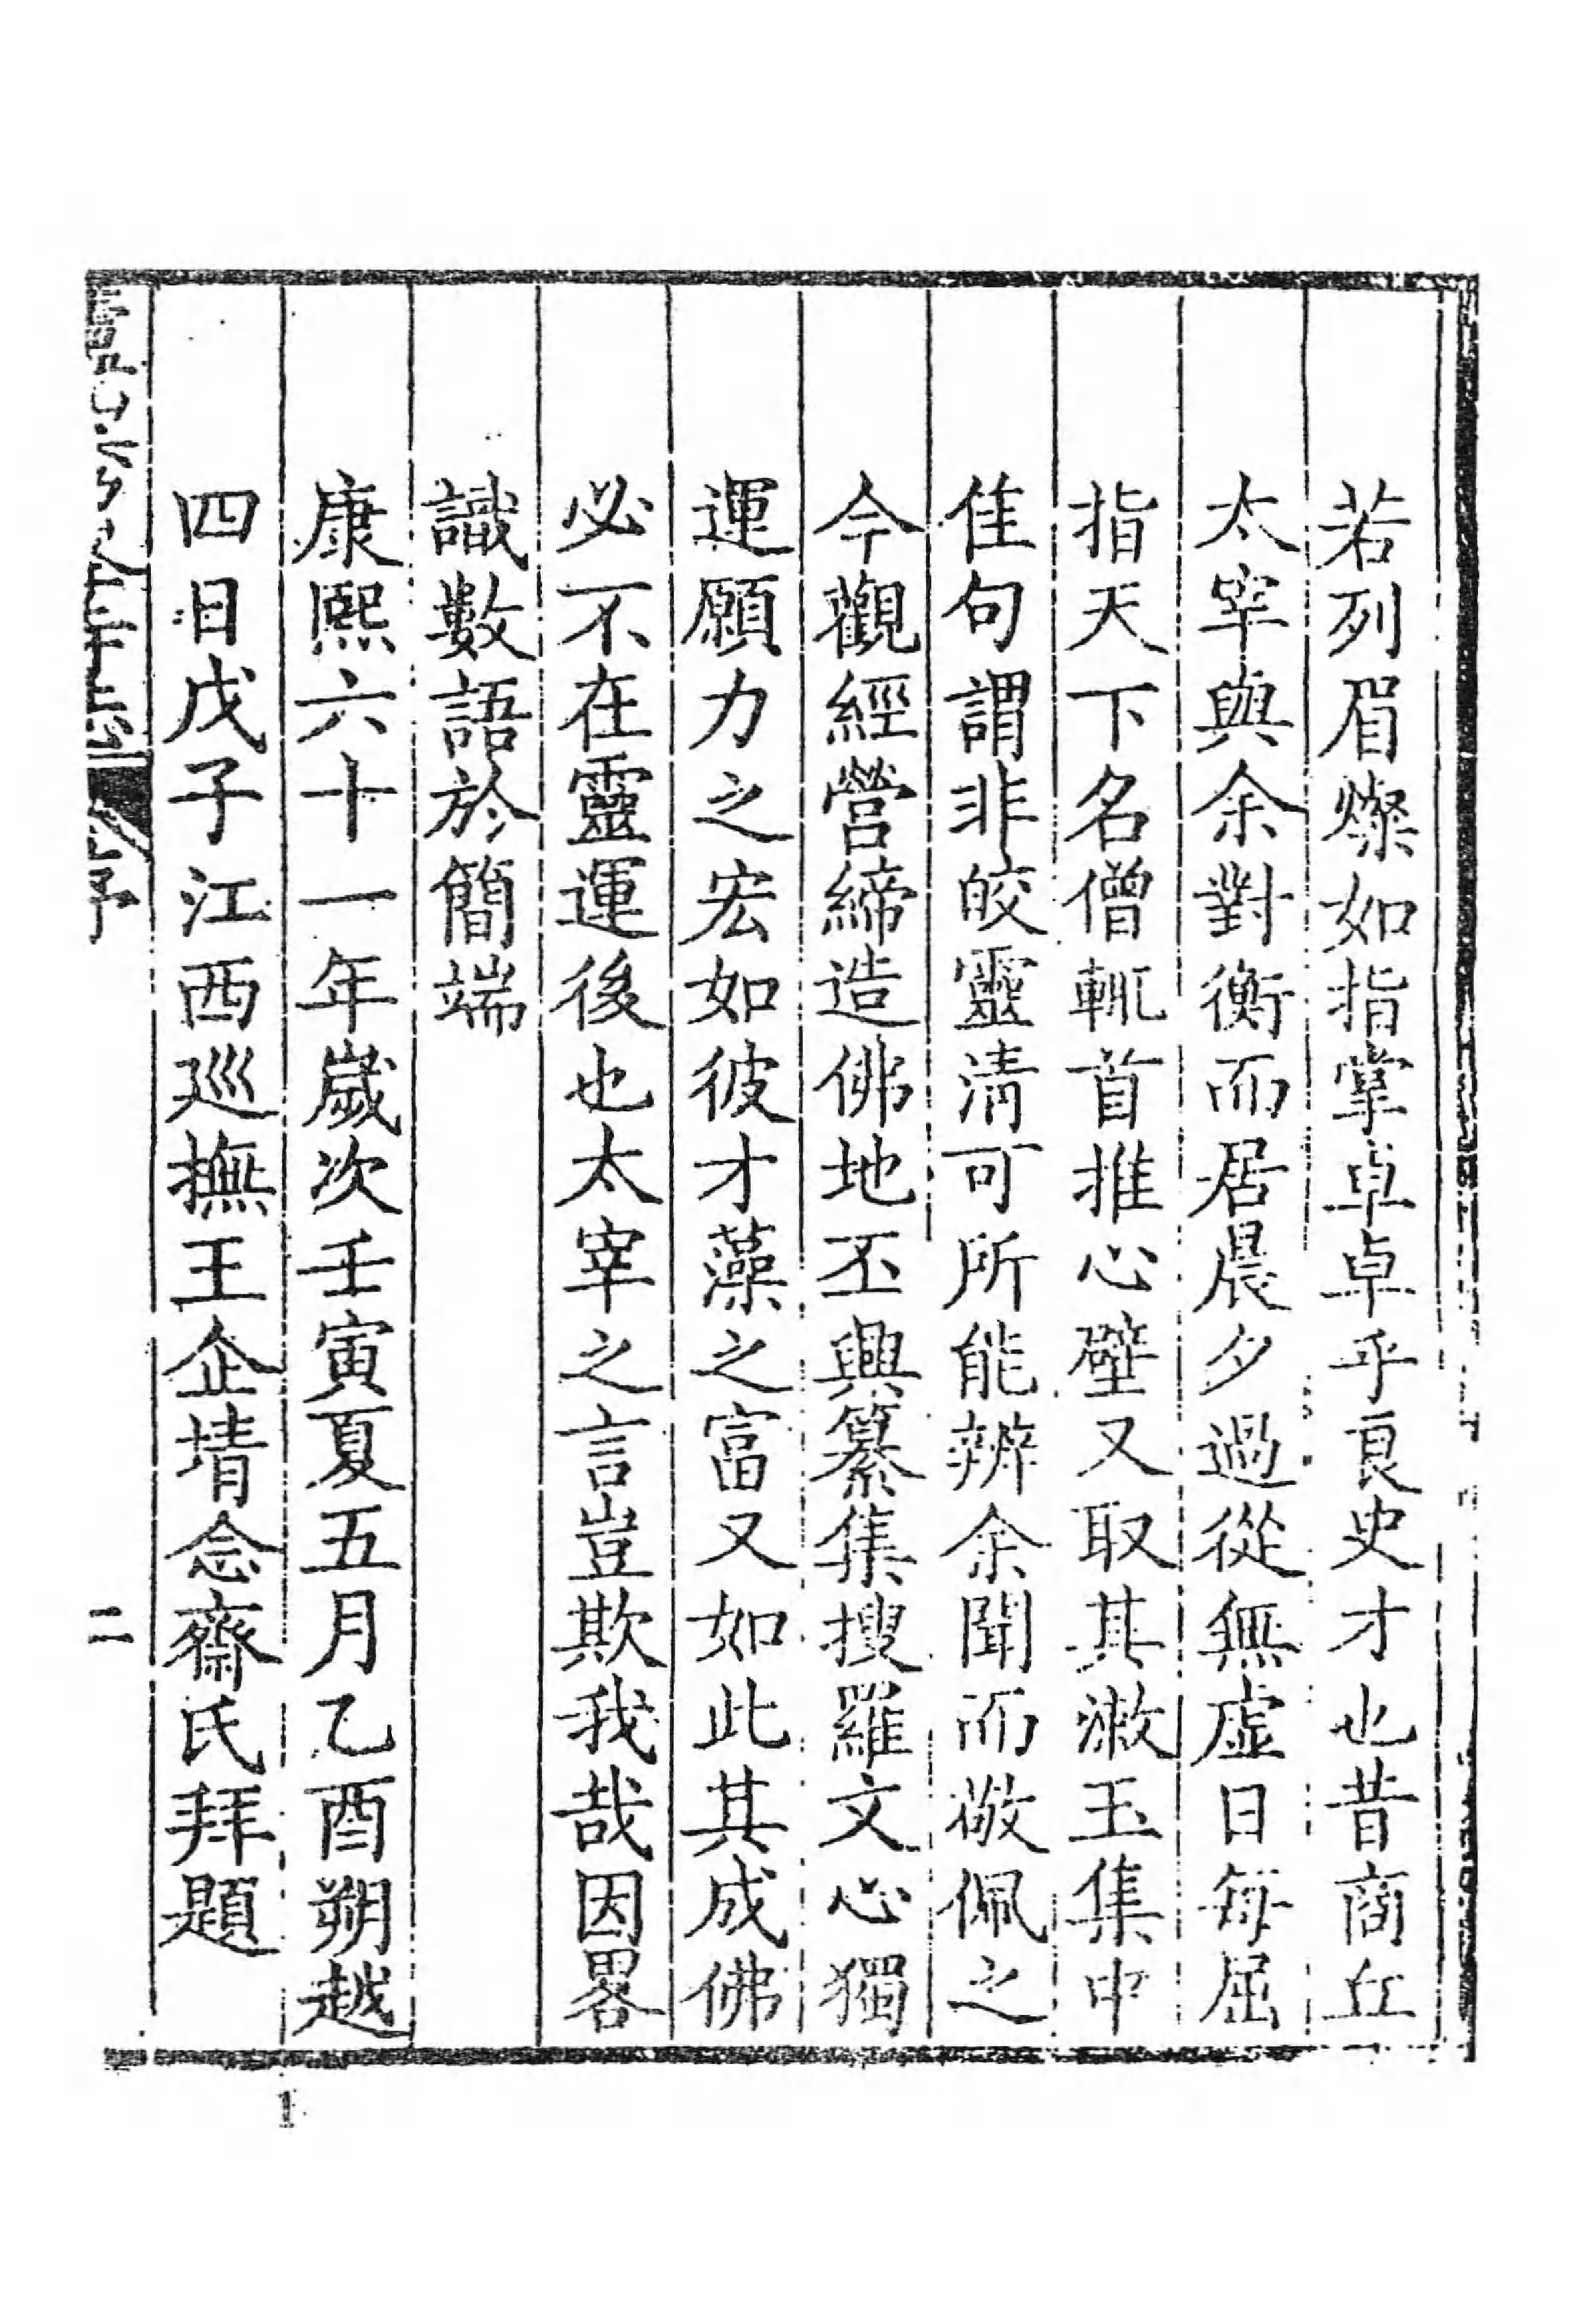 若列眉燦如指掌卓卓乎良史才也昔商丘
太宰與余對衡而居晨夕過從無虛日每屈
指天下名僧輒首推心壁又取其漱玉集中
佳句謂非皎靈清可所能辨余聞而敬佩之
今觀經營締造佛地丕興纂集搜羅文心獨
運願力之宏如彼才藻之富又如此其成佛
必不在靈運後也太宰之言豈欺我哉因畧
識數語於簡端
康熙六十一年歲次壬寅夏五月乙酉朔越
四日戊子江西巡撫王企埥念齋氏拜題
序
二
1